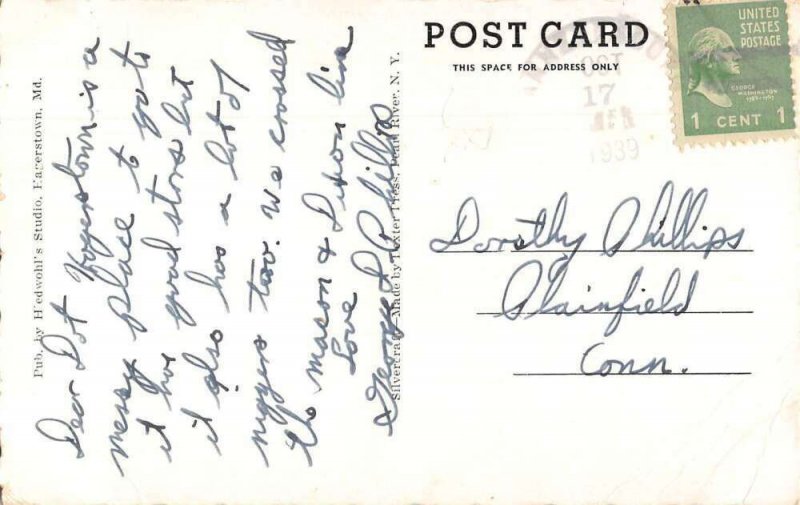 POST CARD
THIS SPACE FOR ADDRESS ONLY
UNITED
STATES
POSTAGE
GEORGE
WASHINGTON
1 CENT 1
OCT
17
1939
Dorothy Phillips
Plainfield
Conn.
Pub. by Hedwohl's Studio, Hagerstown, Md.
Dear Dot Hagerstown is a
messy place to go to
it has good stors but
it also has a lot of
niggers too. We crossed
the mason & Dixon line
Love
George L Phillips
Silvercraft—Made by Dexter Press, Pearl River, N. Y.